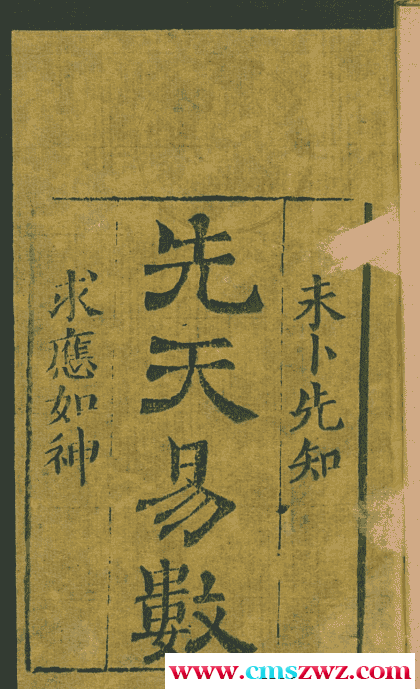 未卜先知
先天易數
求應如神
www.cmszwz.com